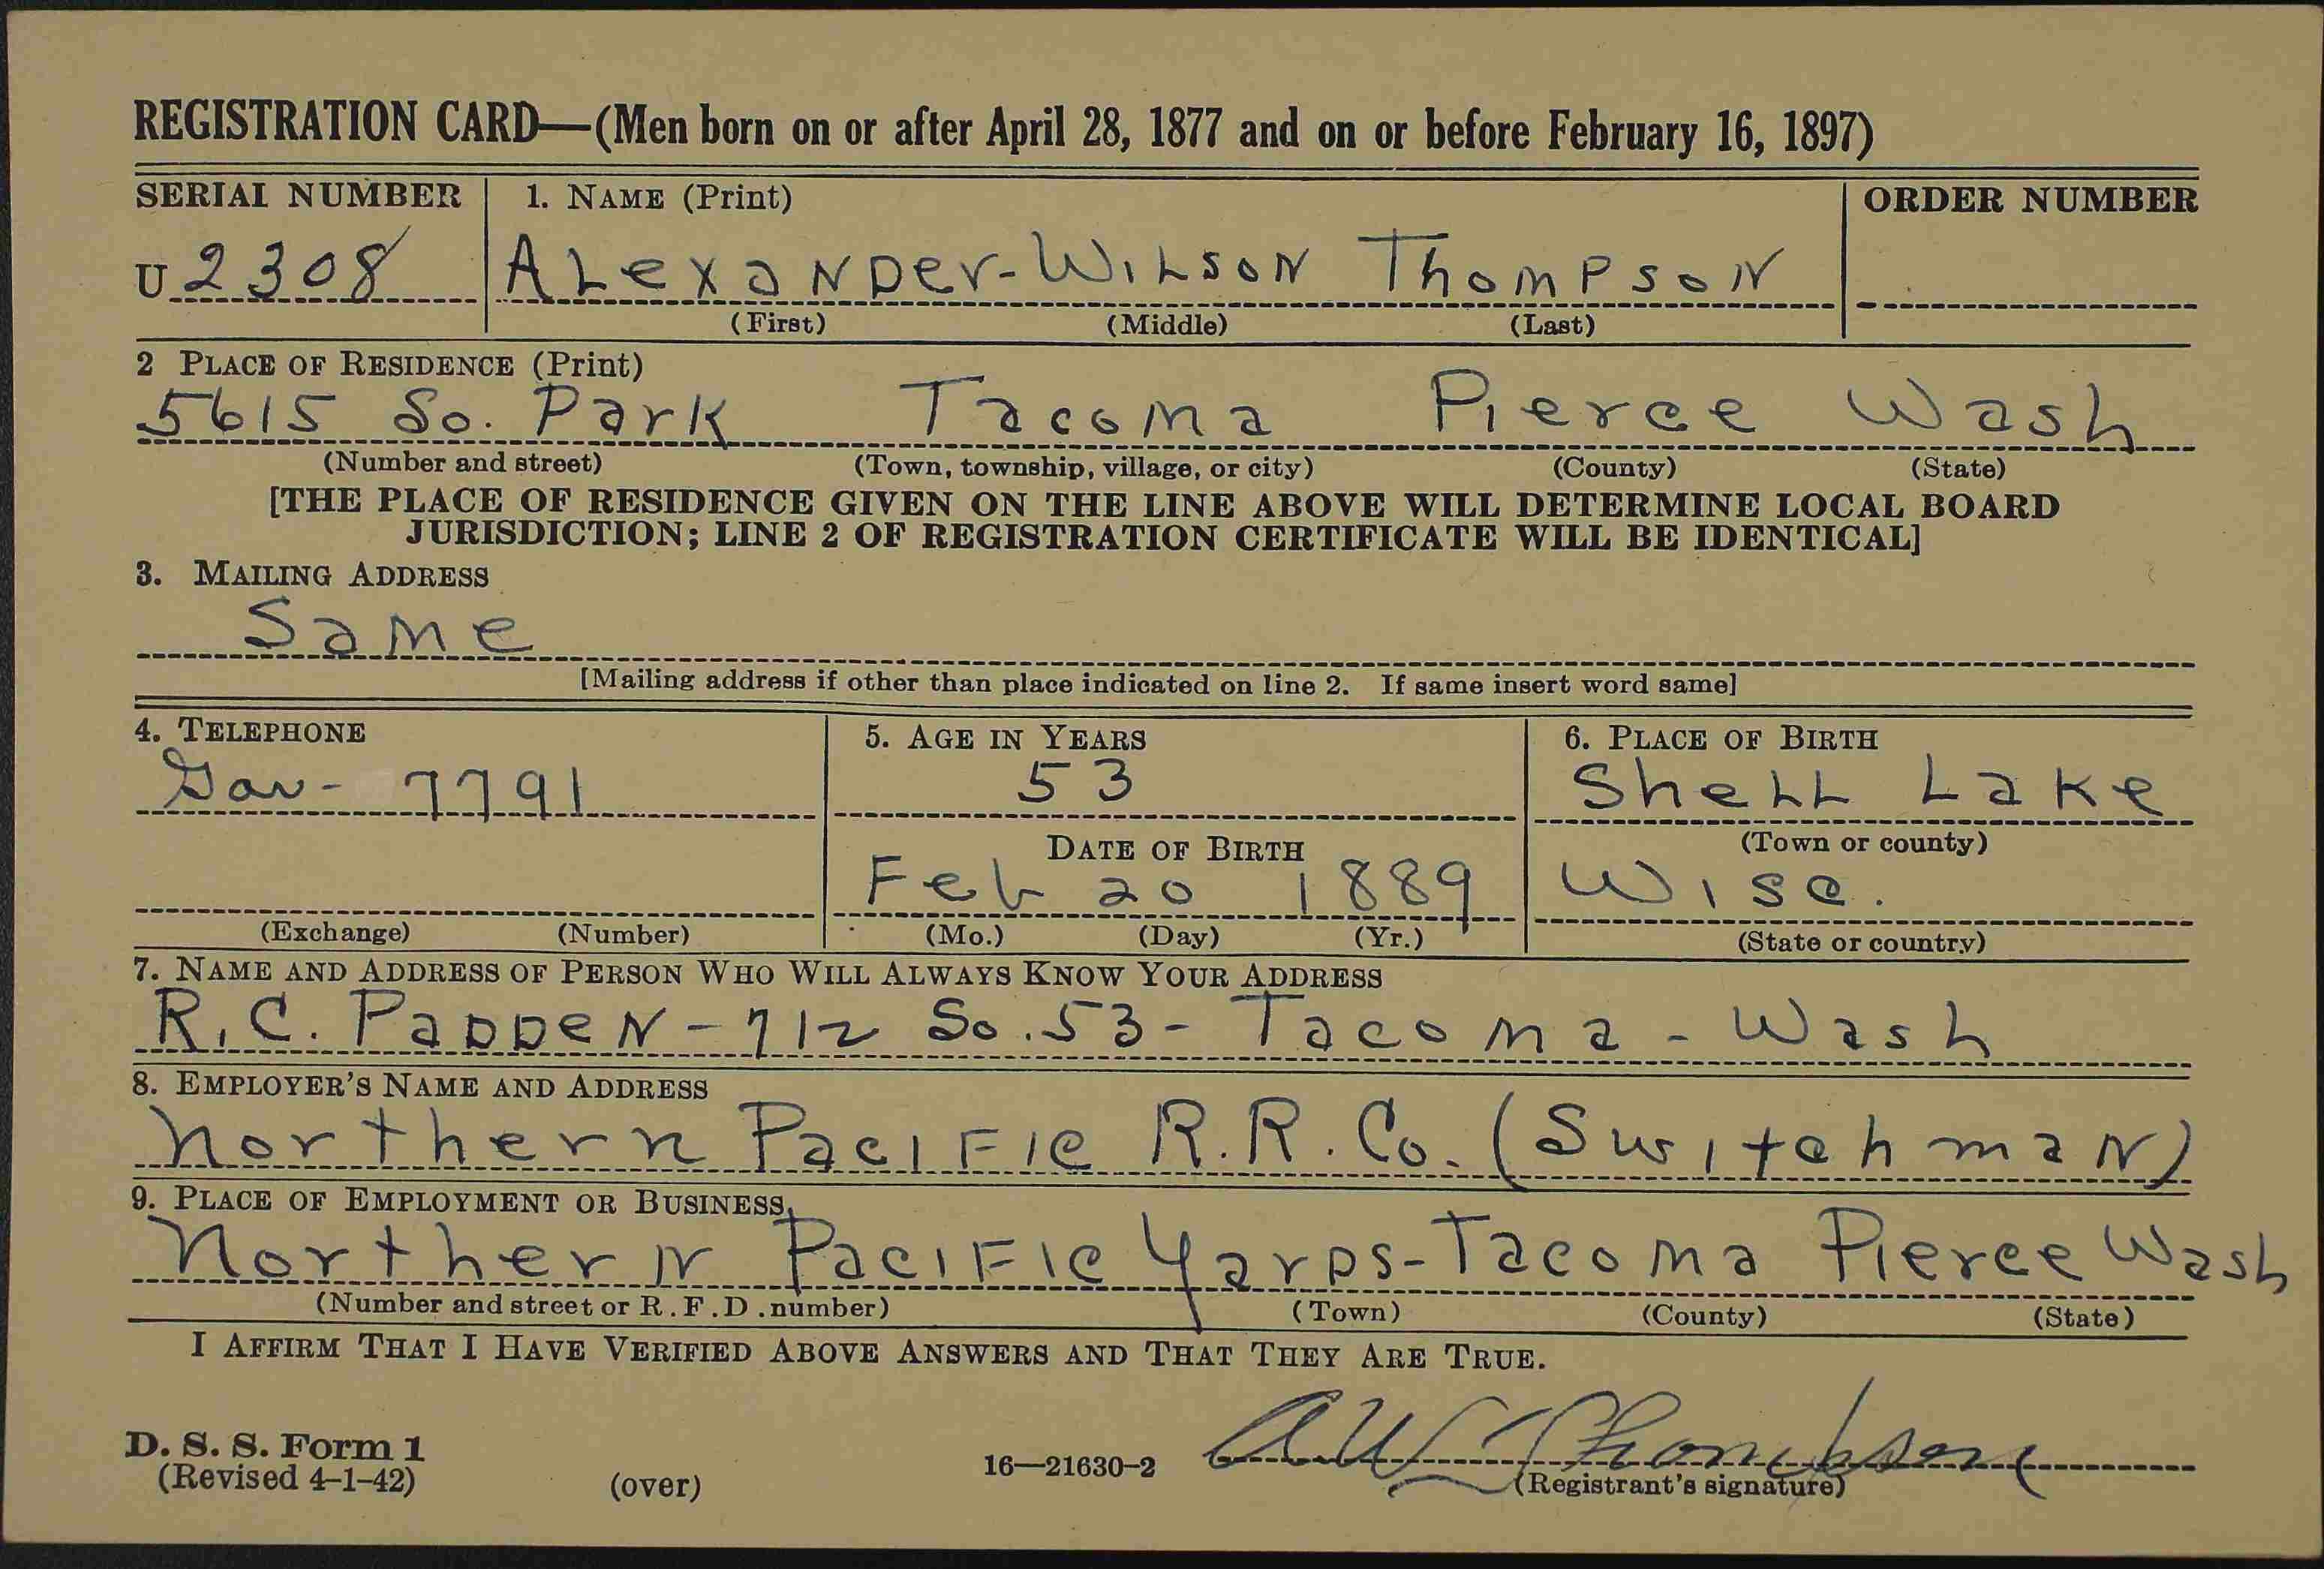 REGISTRATION CARD—(Men born on or after April 28, 1877 and on or before February 16, 1897)
SERIAL NUMBER 1. NAME (Print) ORDER NUMBER
U 2308 ALexaNDer-WiLsoN ThomPsoN
(First) (Middle) (Last)
2 PLACE OF RESIDENCE (Print)
5615 So. Park Tacoma Pierce Wash
(Number and street) (Town, township, village, or city) (County) (State)
[THE PLACE OF RESIDENCE GIVEN ON THE LINE ABOVE WILL DETERMINE LOCAL BOARD
JURISDICTION; LINE 2 OF REGISTRATION CERTIFICATE WILL BE IDENTICAL]
3. MAILING ADDRESS
Same
[Mailing address if other than place indicated on line 2. If same insert word same]
4. TELEPHONE 5. AGE IN YEARS 6. PLACE OF BIRTH
Gar- 7791 53 SheLL Lake
DATE OF BIRTH (Town or county)
Feb 20 1889 Wisc.
(Exchange) (Number) (Mo.) (Day) (Yr.) (State or country)
7. NAME AND ADDRESS OF PERSON WHO WILL ALWAYS KNOW YOUR ADDRESS
R.C. PaDDeN-712 So.53-Tacoma-Wash
8. EMPLOYER'S NAME AND ADDRESS
Northern PaciFic R.R. Co. (SwitchmaN)
9. PLACE OF EMPLOYMENT OR BUSINESS
NortherN PaciFic YarDs-Tacoma Pierce Wash
(Number and street or R.F.D. number) (Town) (County) (State)
I AFFIRM THAT I HAVE VERIFIED ABOVE ANSWERS AND THAT THEY ARE TRUE.
A W Thompson
D. S. S. Form 1
(Revised 4-1-42) (over) 16—21630-2 (Registrant's signature)